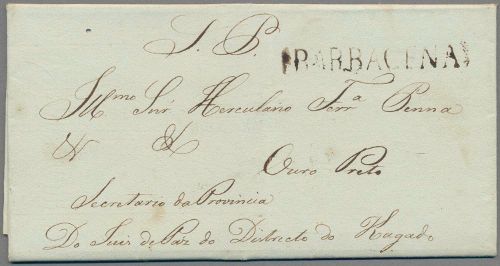 S. P.
BARBACENA
Illmo Snr Herculano Ferra Penna
& &
Ouro Preto
Secretario da Provincia
Do Juis de Páz do Districto do Kagado